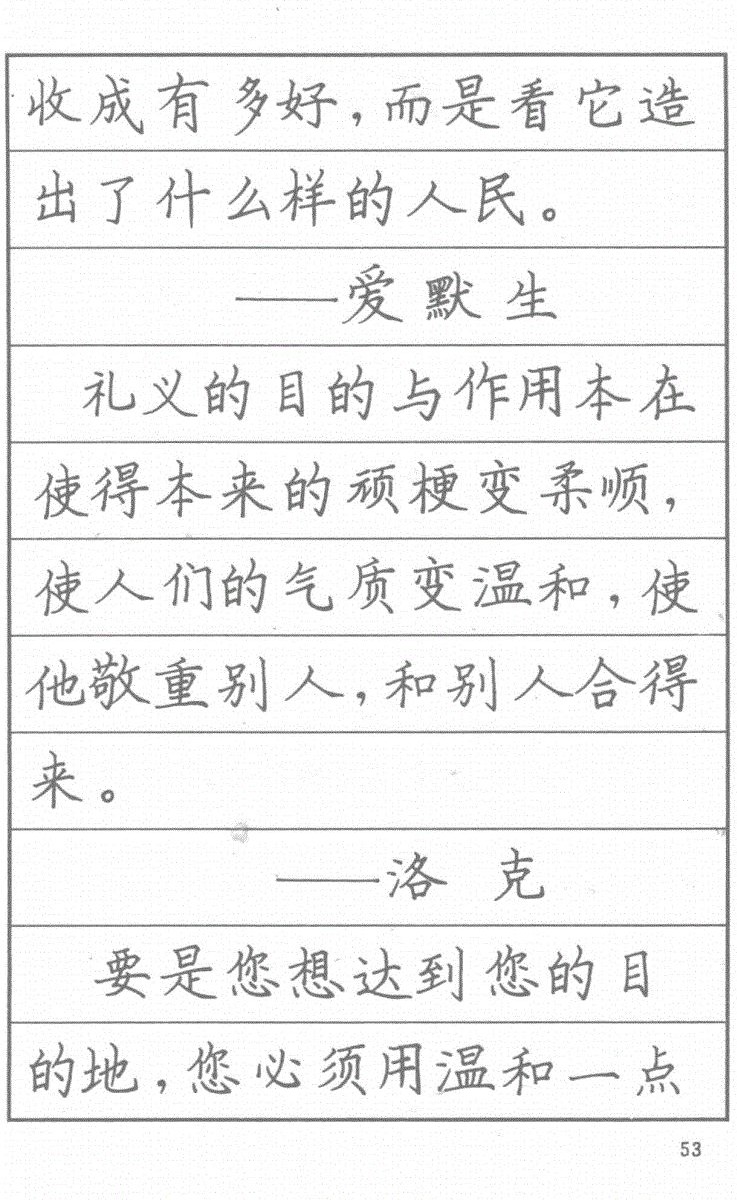 收成有多好，而是看它造
出了什么样的人民。
——爱默生
礼义的目的与作用本在
使得本来的顽梗变柔顺，
使人们的气质变温和，使
他敬重别人，和别人合得
来。
——洛克
要是您想达到您的目
的地，您必须用温和一点
53